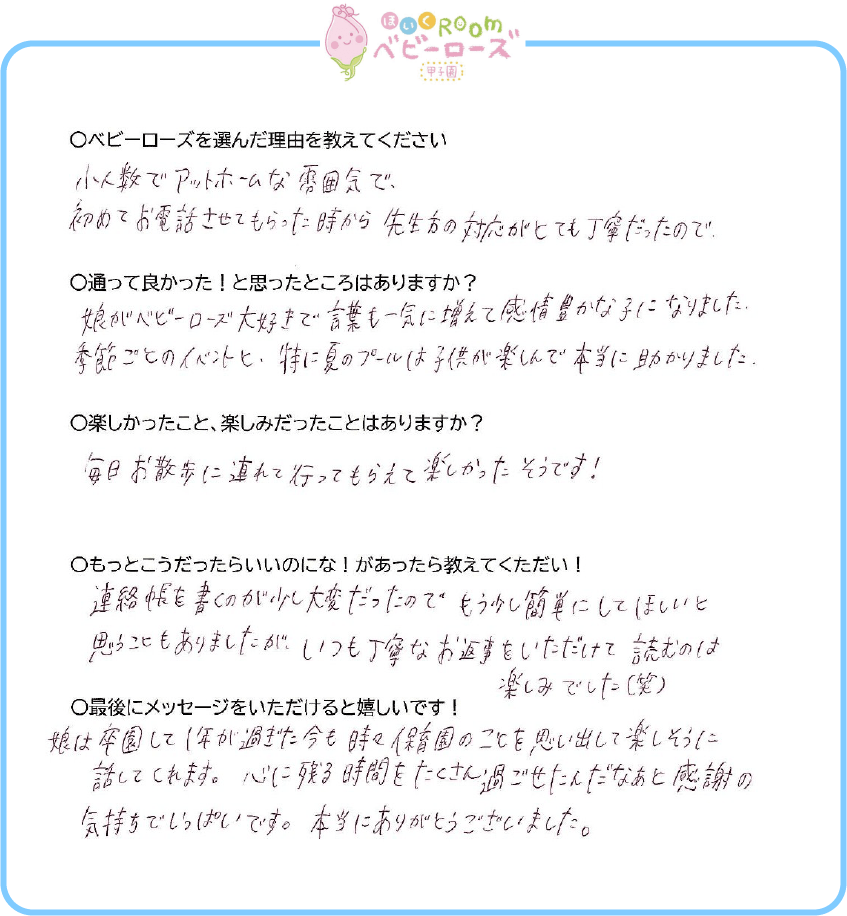 ほいくROOM
ベビーローズ
甲子園
○ベビーローズを選んだ理由を教えてください
小人数でアットホームな雰囲気で、
初めてお電話させてもらった時から 先生方の対応がとても丁寧だったので.
○通って良かった！と思ったところはありますか？
娘がベビーローズ大好きで言葉も一気に増えて感情豊かな子になりました.
季節ごとのイベントと、特に夏のプールは子供が楽しんで本当に助かりました.
○楽しかったこと、楽しみだったことはありますか？
毎日お散歩に連れて行ってもらえて楽しかったそうです！
○もっとこうだったらいいのにな！があったら教えてくただい！
連絡帳を書くのが少し大変だったので もう少し簡単にしてほしいと
思うこともありましたが、いつも丁寧なお返事をいただけて 読むのは
楽しみでした(笑)
○最後にメッセージをいただけると嬉しいです！
娘は卒園して1年が過ぎた今も時々保育園のことを思い出して楽しそうに
話してくれます。心に残る時間をたくさん過ごせたんだなぁと感謝の
気持ちでいっぱいです。本当にありがとうございました。